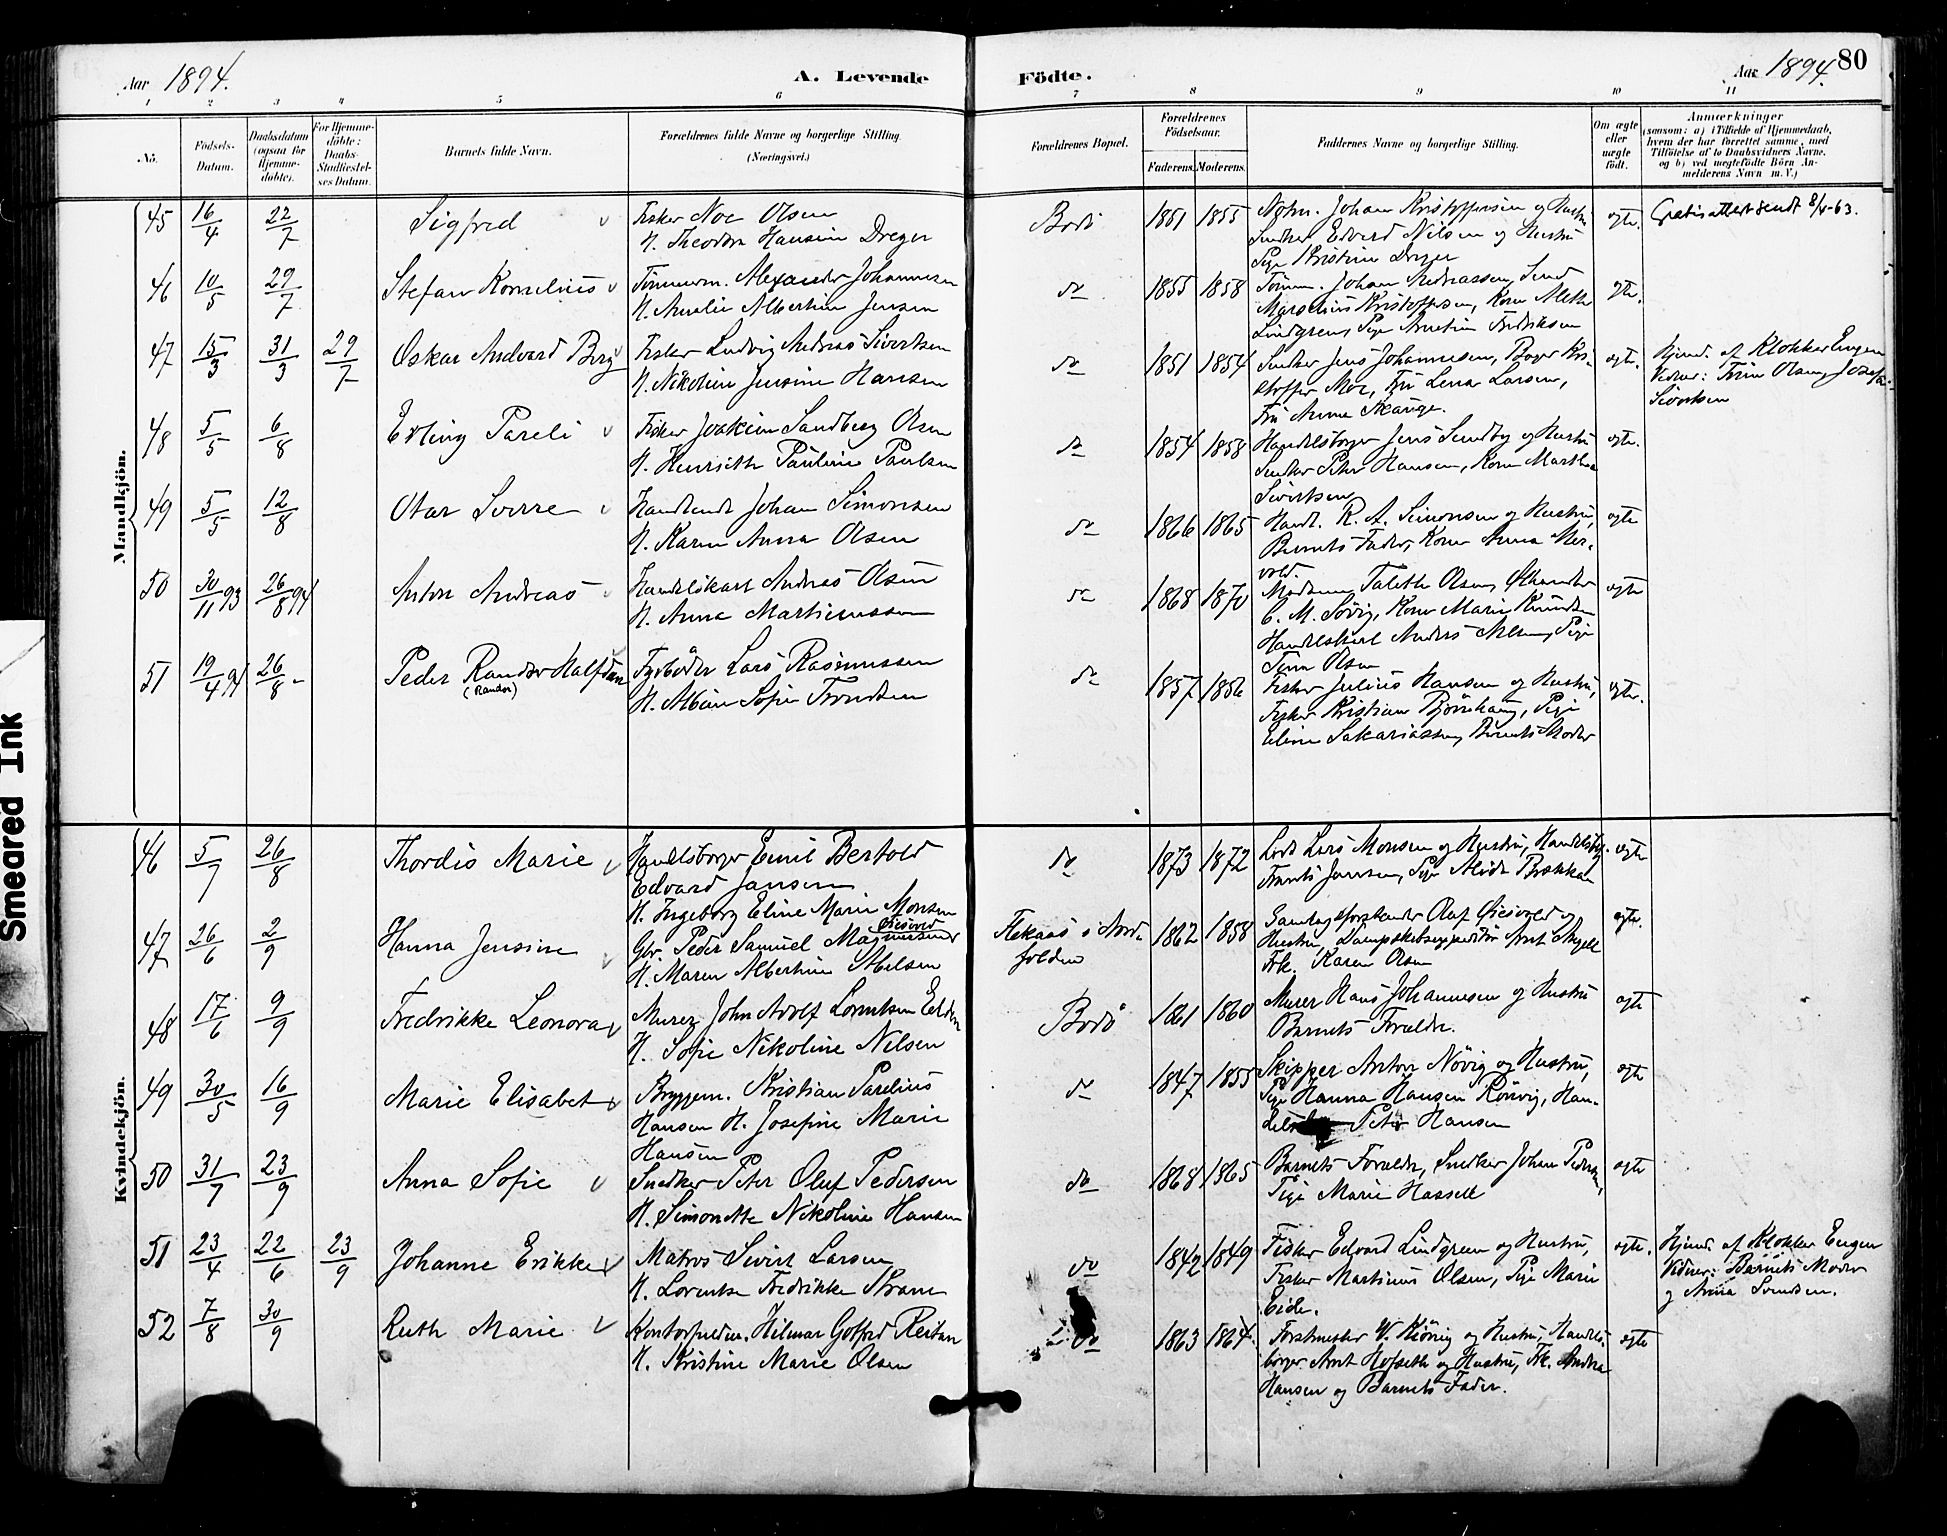 Aar 1894.
A. Levende
Födte.
Aar 1894.
80
1 2 3 4 5 6 7 8 9 10 11
No.
Födsels-
Datum.
Daabsdatum
(ogsaa for
Hjemme-
döbte).
For Hjemme-
döbte:
Daabs-
Stadfæstel-
ses Datum.
Barnets fulde Navn.
Forældrenes fulde Navne og borgerlige Stilling.
(Næringsvei.)
Forældrenes Bopæl.
Forældrenes
Födselsaar.
Faderens. Moderens.
Faddernes Navne og borgerlige Stilling.
Om ægte
eller
uægte
födt.
Anmærkninger
(saasom: a) i Tilfælde af Hjemmedaab,
hvem der har forrettet samme, med
Tilföielse af to Daabsvidners Navne.
og b) ved uegtefödte Börn An-
melderens Navn m. V.)
Mandkjön.
45 16/4 22/7 Sigfred
Fisker Noe Olsen
H. Theodora Hansine Dreyer
Bodö 1851 1855
Johan Kristoffersen og Hustru
Snedker Edvard Nilsen og Hustru
Pige Kristine Dreyer
ægte.
Gratis attest sendt 8/4-63.
46 10/5 29/7 Stefan Kornelius
Tömmerm. Alexander Johannesen
H. Amalie Albertine Jensen
do 1855 1858
Tömm. Johan Andreassen, Snedk
Marselius Kristoffersen, Kone Alette
Lindgren, Pige Anetine Fredriksen
ægte.
47 15/3 31/3 29/7 Oskar Andvard Berg
Fisker Ludvig Andreas Sivertsen
H. Nikoline Jensine Hansen
do 1851 1854
Snedker Jens Johannesen, Bager Kri-
stoffer Moe, Fru Lena Larsen,
Fru Anna Skauge.
ægte.
Hjmd. af Klokker Eugen
Vidner: Trine Olsen, Josefine
Sivertsen
48 5/5 6/8 Erling Pareli
Fisker Joakim Sandberg Olsen
H. Henriette Pauline Paulsen
do 1854 1858
Handelsborger Jens Sundby og Hustru
Snedker Peter Hansen, Kone Martha
Sivertsen
ægte.
49 5/5 12/8 Otar Sverre
Handlende Johan Simonsen
H. Karen Anna Olsen
do 1866 1865
Handl. K. A. Simonsen og Hustru,
Barnets Fader, Kone Anna Mer-
vold.
ægte
50 30/11 93 26/8 94 Anton Andreas
Handelskarl Andreas Olsen
H. Anna Martinussen
do 1868 1870
Madame Taleth Olsen, Ölhandler
C. M. Sövig, Kone Marie Knudsen
Handelskarl Anders Nilsen, Pige
Trine Olsen
ægte
51 19/4 94 26/8 - Peder Randor Halfdan
(Randor)
Fyrböder Lars Rasmussen
H. Albine Sofie Trondsen
do 1857 1856
Fisker Julius Hansen og Hustru,
Fisker Kristian Björnhaug, Pige
Eline Sakariassen, Barnets Moder
ægte.
Kvindekjön.
46 5/7 26/8 Thordis Marie
Handelsborger Emil Bertold
Edvard Jansen
H. Ingeborg Eline Marie Monsen
do 1873 1872
Lods Lars Monsen og Hustru, Handelsbg.
Frants Jansen, Pige Alida Brækkan
ægte
47 26/6 2/9 Hanna Jensine
Gbr. Peder Samuel Magnussen
Öiesvold
H. Maren Albertine Abelsen
Flekaas i Nord-
folden
1862 1858
Samlagsforstander Olaf Öiesvold og
Hustru, Dampskibsexpeditör Arnt Angell
Frk. Karen Olsen
ægte.
48 17/6 9/9 Fredrikke Leonora
Murer John Adolf Lorentsen Eelden
H. Sofie Nikoline Nilsen
Bodö 1861 1860
Murer Hans Johannesen og Hustru
Barnets Forældre.
ægte
49 30/5 16/9 Marie Elisabet
Bryggem. Kristian Parelius
Hansen H. Josefine Marie
Hansen
do 1847 1855
Skipper Anton Növig og Hustru,
Pige Hanna Hansen Rönvig, Han-
Peter Hansen
ægte
50 31/7 23/9 Anna Sofie
Snedker Peter Oluf Pedersen
H. Simonette Nikoline Hansen
do 1868 1865
Barnets Forældre, Snedker Johan Pedersen,
Pige Marie Hassell
ægte
51 23/4 22/6 23/9 Johanne Erikke
Matros Sivert Larsen
H. Lorentse Fredrikke Strøm
do 1842 1849
Fisker Edvard Lindgren og Hustru,
Fisker Martinus Olsen, Pige Marie
Eide.
ægte.
Hjmd. af Klokker Eugen
Vidner: Barnets Moder
og Anna Svendsen.
52 7/8 30/9 Ruth Marie
Kontorfuldm. Hilmar Gotfred Reitan
H. Kristine Marie Olsen
do 1863 1864.
Forstmester W. Kiönig og Hustru, Handels-
borger Arnt Hofseth og Hustru, Frk. Andrea
Hansen og Barnets Fader.
ægte
Smeared Ink